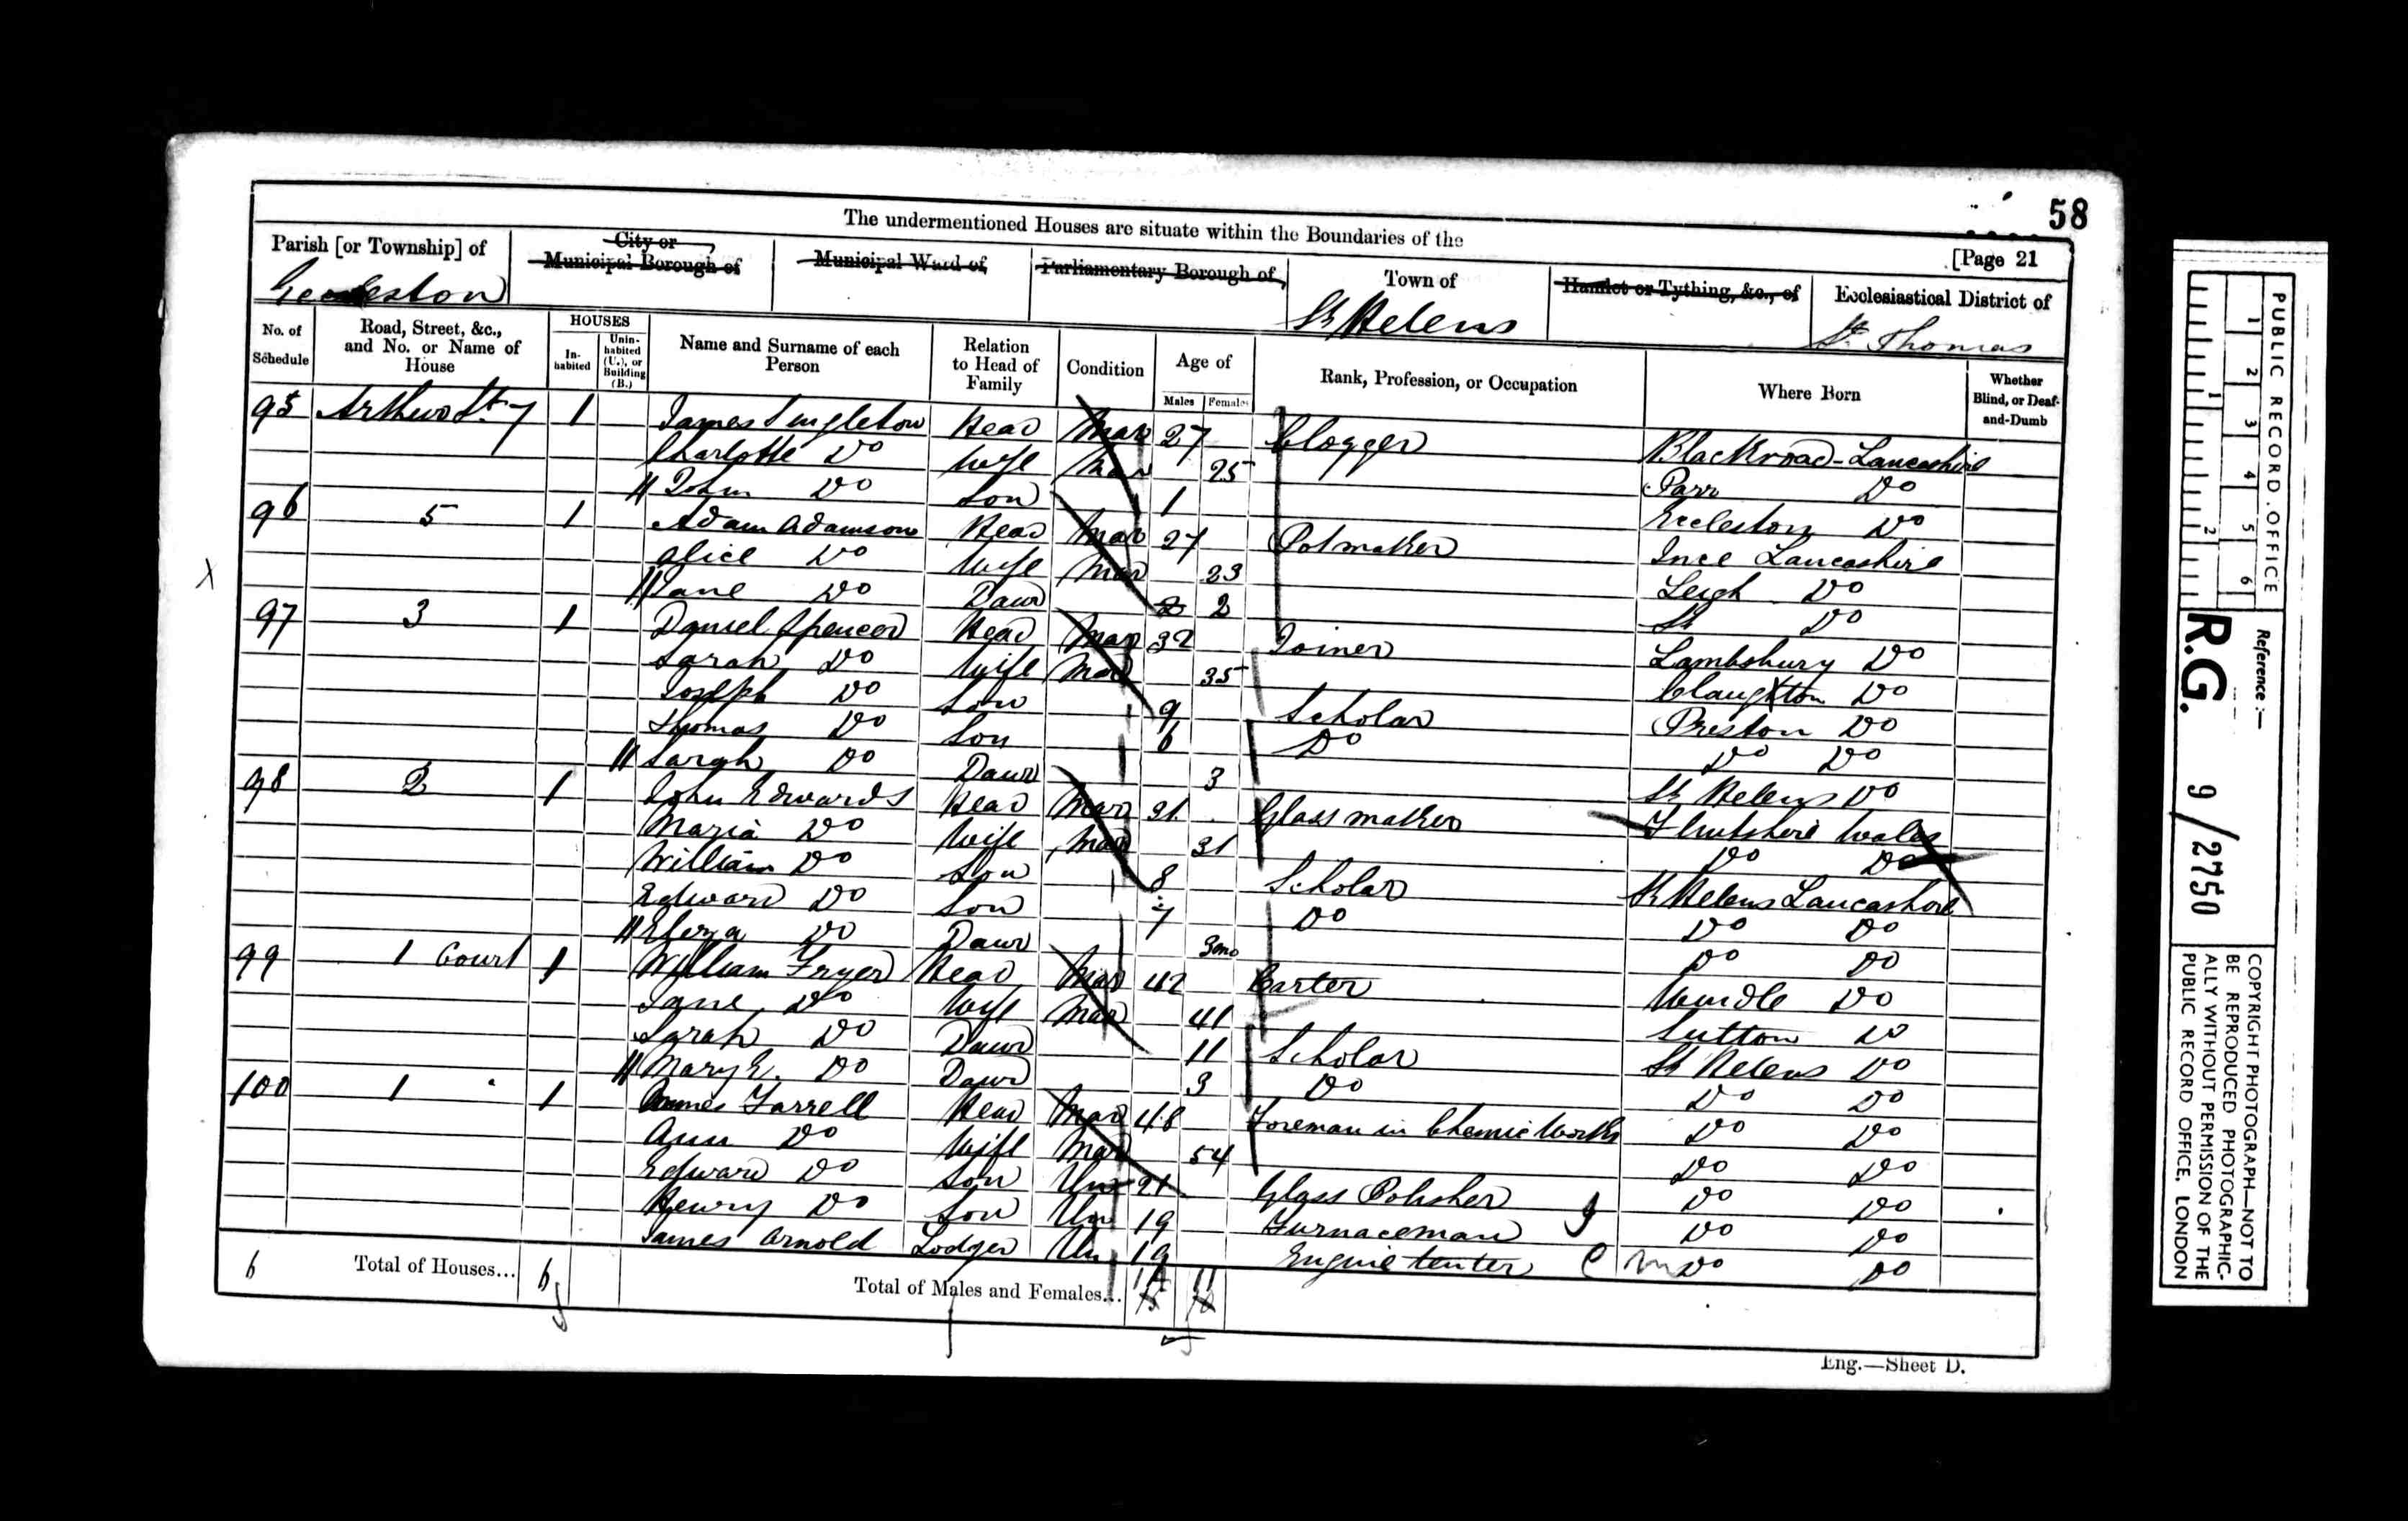 58
The undermentioned Houses are situate within the Boundaries of the
[Page 21
Parish [or Township] of
City or Municipal Borough of
Municipal Ward of
Parliamentary Borough of
Town of
Hamlet or Tything, &c., of
Ecclesiastical District of
Eccleston
St Helens
St Thomas
No. of Schedule
Road, Street, &c., and No. or Name of House
HOUSES
Inhabited
Uninhabited (U.), or Building (B.)
Name and Surname of each Person
Relation to Head of Family
Condition
Age of
Males
Females
Rank, Profession, or Occupation
Where Born
Whether Blind, or Deaf-and-Dumb
95 Arthur St. 7 1 James Singleton Head Mar 27 Clogger Blackroad - Lancashire
Charlotte Do Wife Mar 25 Parr Do
John Do Son 1 Eccleston Do
96 5 1 Adam Adamson Head Mar 27 Potmaker Ince Lancashire
Alice Do Wife Mar 23 Leigh Do
Jane Do Daur 2 St Do
97 3 1 Daniel Spencer Head Mar 32 Joiner Lambsbury Do
Sarah Do Wife Mar 35 Claughton Do
Joseph Do Son 9 Scholar Preston Do
Thomas Do Son 6 Do Do Do
Sarah Do Daur 3 St Helens Do
98 2 1 John Edwards Head Mar 31 Glass maker Flintshire Wales
Maria Do Wife Mar 31 Do Do
William Do Son 8 Scholar St Helens Lancashire
Edward Do Son 7 Do Do Do
Eliza Do Daur 3mo Do Do
99 1 Court 1 William Fryer Head Mar 42 Carter Windle Do
Jane Do Wife Mar 41 Sutton Do
Sarah Do Daur 11 Scholar St Helens Do
Mary E. Do Daur 3 Do Do Do
100 1 1 James Farrell Head Mar 48 Foreman in Chemic Works Do Do
Ann Do Wife Mar 54 Do Do
Edward Do Son Un 21 Glass Polisher Do Do
Henry Do Son Un 19 Furnaceman Do Do
James Arnold Lodger Un 19 Engine tenter Do Do
6 Total of Houses... 6
Total of Males and Females... 14 11
Eng.—Sheet D.
PUBLIC RECORD OFFICE
1 2 3 4 5 6
1 2
Reference:—
R.G. 9/2750
COPYRIGHT PHOTOGRAPH—NOT TO BE REPRODUCED PHOTOGRAPHICALLY WITHOUT PERMISSION OF THE PUBLIC RECORD OFFICE, LONDON